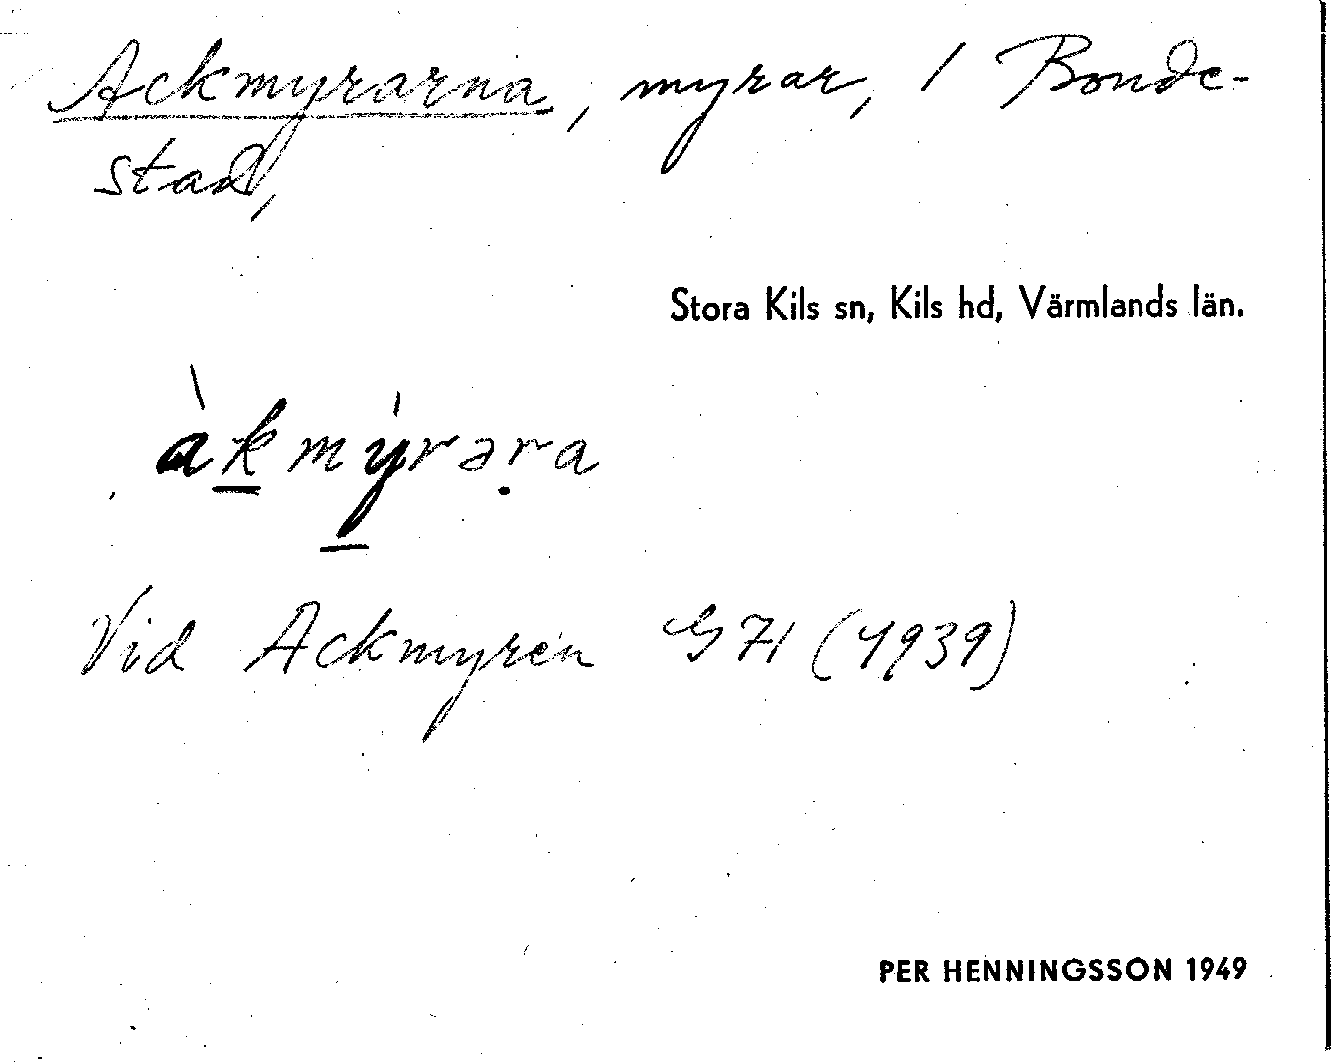 Ackmyrarna, myrar, i Bonde-
stad,
Stora Kils sn, Kils hd, Värmlands län.
àk̲mý̲rəṛa
Vid Ackmyren G71 (1939)
PER HENNINGSSON 1949